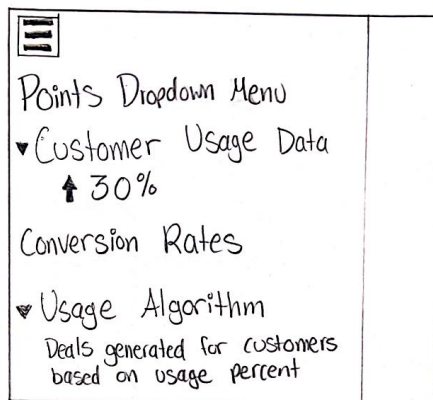 Points Dropdown Menu
▾ Customer Usage Data
⬆ 30%
Conversion Rates
▾ Usage Algorithm
Deals generated for customers
based on usage percent